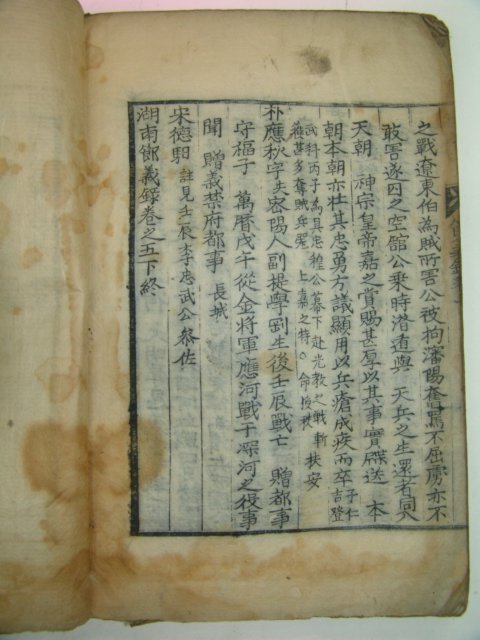 之戰遼東伯爲賊所害公被拘瀋陽奮罵不屈虜亦不
敢害遂囚之空舘公乘時潛逃與 天兵之生還者同入
天朝 神宗皇帝嘉之賞賜甚厚以其事實牒送 本
朝本朝亦壯其忠勇方議顯用以兵瘡成疾而卒 子仁吉登
武科丙子爲具忠 公幕下赴光敎之戰斬
獲甚多奪賊兵器 上嘉之特 命 扶安
朴應秋 字 密陽人副提學剛生後壬辰戰亡 贈都事
守樞子 萬曆戊午從金將軍應河戰于深河之役事
聞 贈義禁府都事 長城
宋德馹 註見壬辰李忠武公叅佐
湖南節義錄卷之五下終